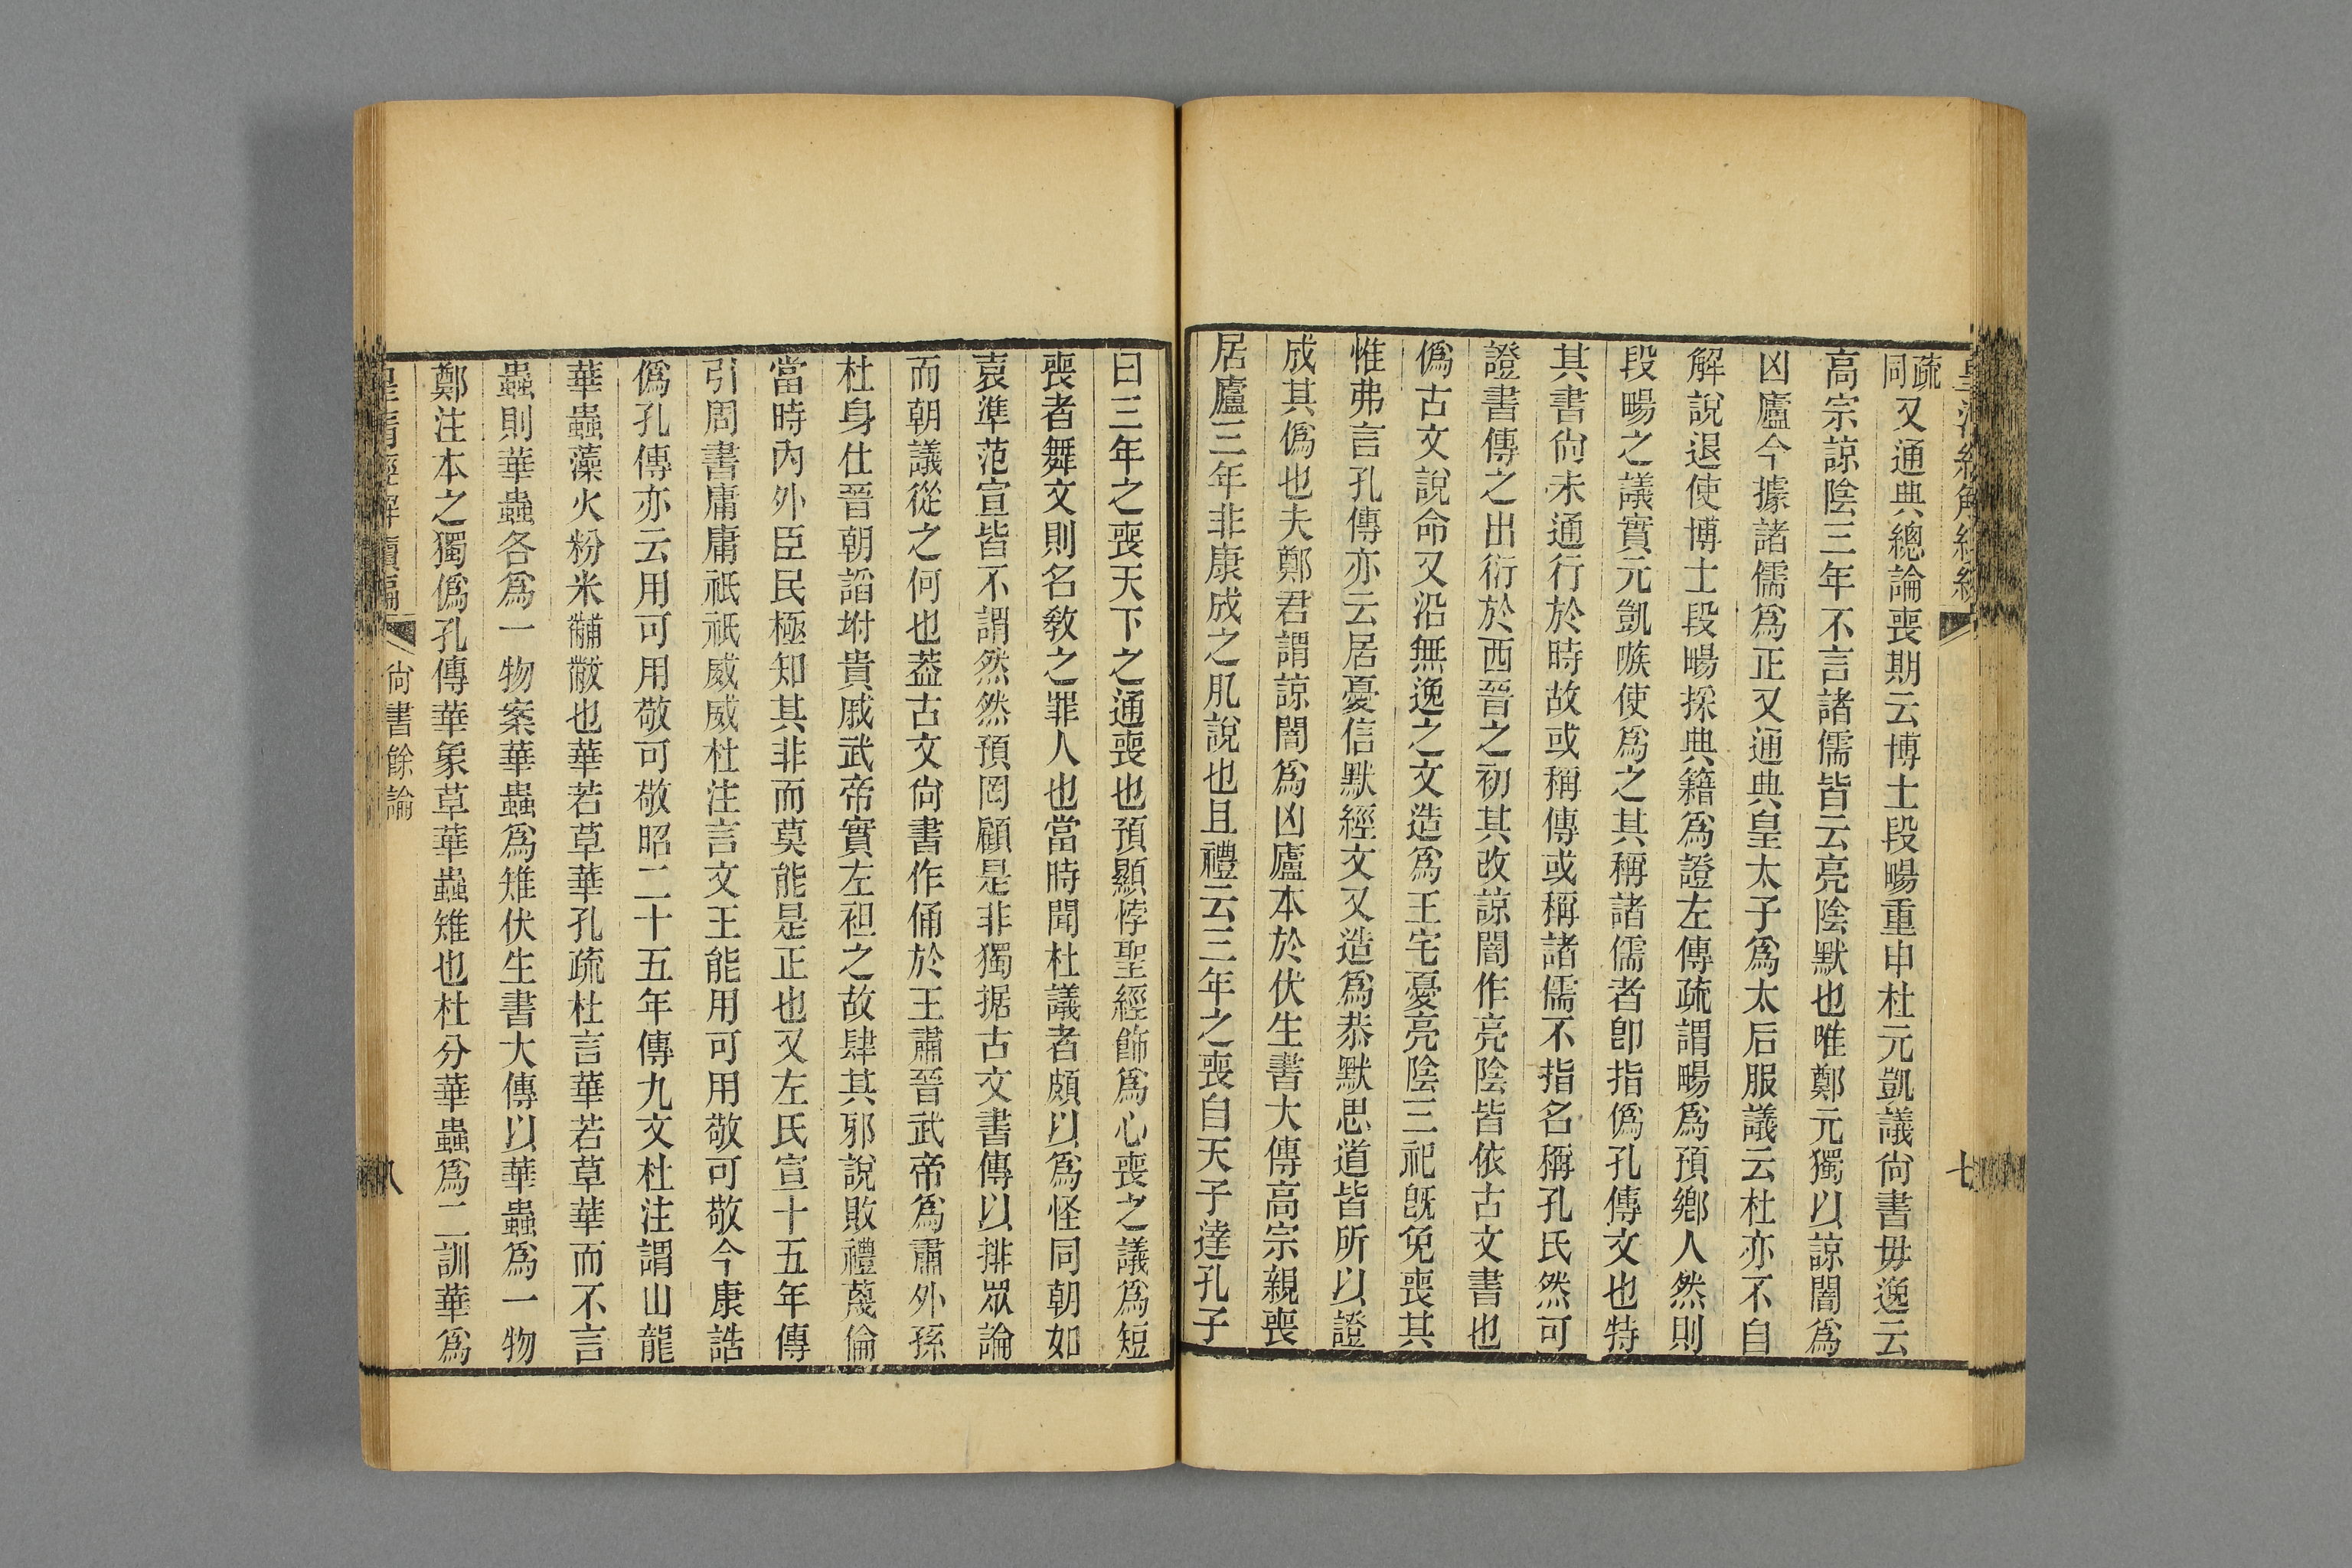 皇清經解續編
七
疏同又通典總論喪期云博士段暢重申杜元凱議尙書毋逸云
高宗諒陰三年不言諸儒皆云亮陰默也唯鄭元獨以諒闇爲
凶廬今據諸儒爲正又通典皇太子爲太后服議云杜亦不自
解說退使博士段暢採典籍爲證左傳疏謂暢爲預鄕人然則
段暢之議實元凱嗾使爲之其稱諸儒者卽指僞孔傳文也特
其書尙未通行於時故或稱傳或稱諸儒不指名稱孔氏然可
證書傳之出衍於西晉之初其改諒闇作亮陰皆依古文書也
僞古文說命又沿無逸之文造爲王宅憂亮陰三祀旣免喪其
惟弗言孔傳亦云居憂信默經文又造爲恭默思道皆所以證
成其僞也夫鄭君謂諒闇爲凶廬本於伏生書大傳高宗親喪
居廬三年非康成之肊說也且禮云三年之喪自天子達孔子
曰三年之喪天下之通喪也預顯悖聖經飾爲心喪之議爲短
喪者舞文則名敎之罪人也當時聞杜議者頗以爲怪同朝如
裒準范宣皆不謂然然預罔顧是非獨据古文書傳以排眾論
而朝議從之何也葢古文尙書作俑於王肅晉武帝爲肅外孫
杜身仕晉朝諂坿貴戚武帝實左袒之故肆其邪說敗禮蔑倫
當時內外臣民極知其非而莫能是正也又左氏宣十五年傳
引周書庸庸祇祇威威杜注言文王能用可用敬可敬今康誥
僞孔傳亦云用可用敬可敬昭二十五年傳九文杜注謂山龍
華蟲藻火粉米黼黻也華若草華孔疏杜言華若草華而不言
蟲則華蟲各爲一物案華蟲爲雉伏生書大傳以華蟲爲一物
鄭注本之獨僞孔傳華象草華蟲雉也杜分華蟲爲二訓華爲
皇淸經解續編
尙書餘論
八